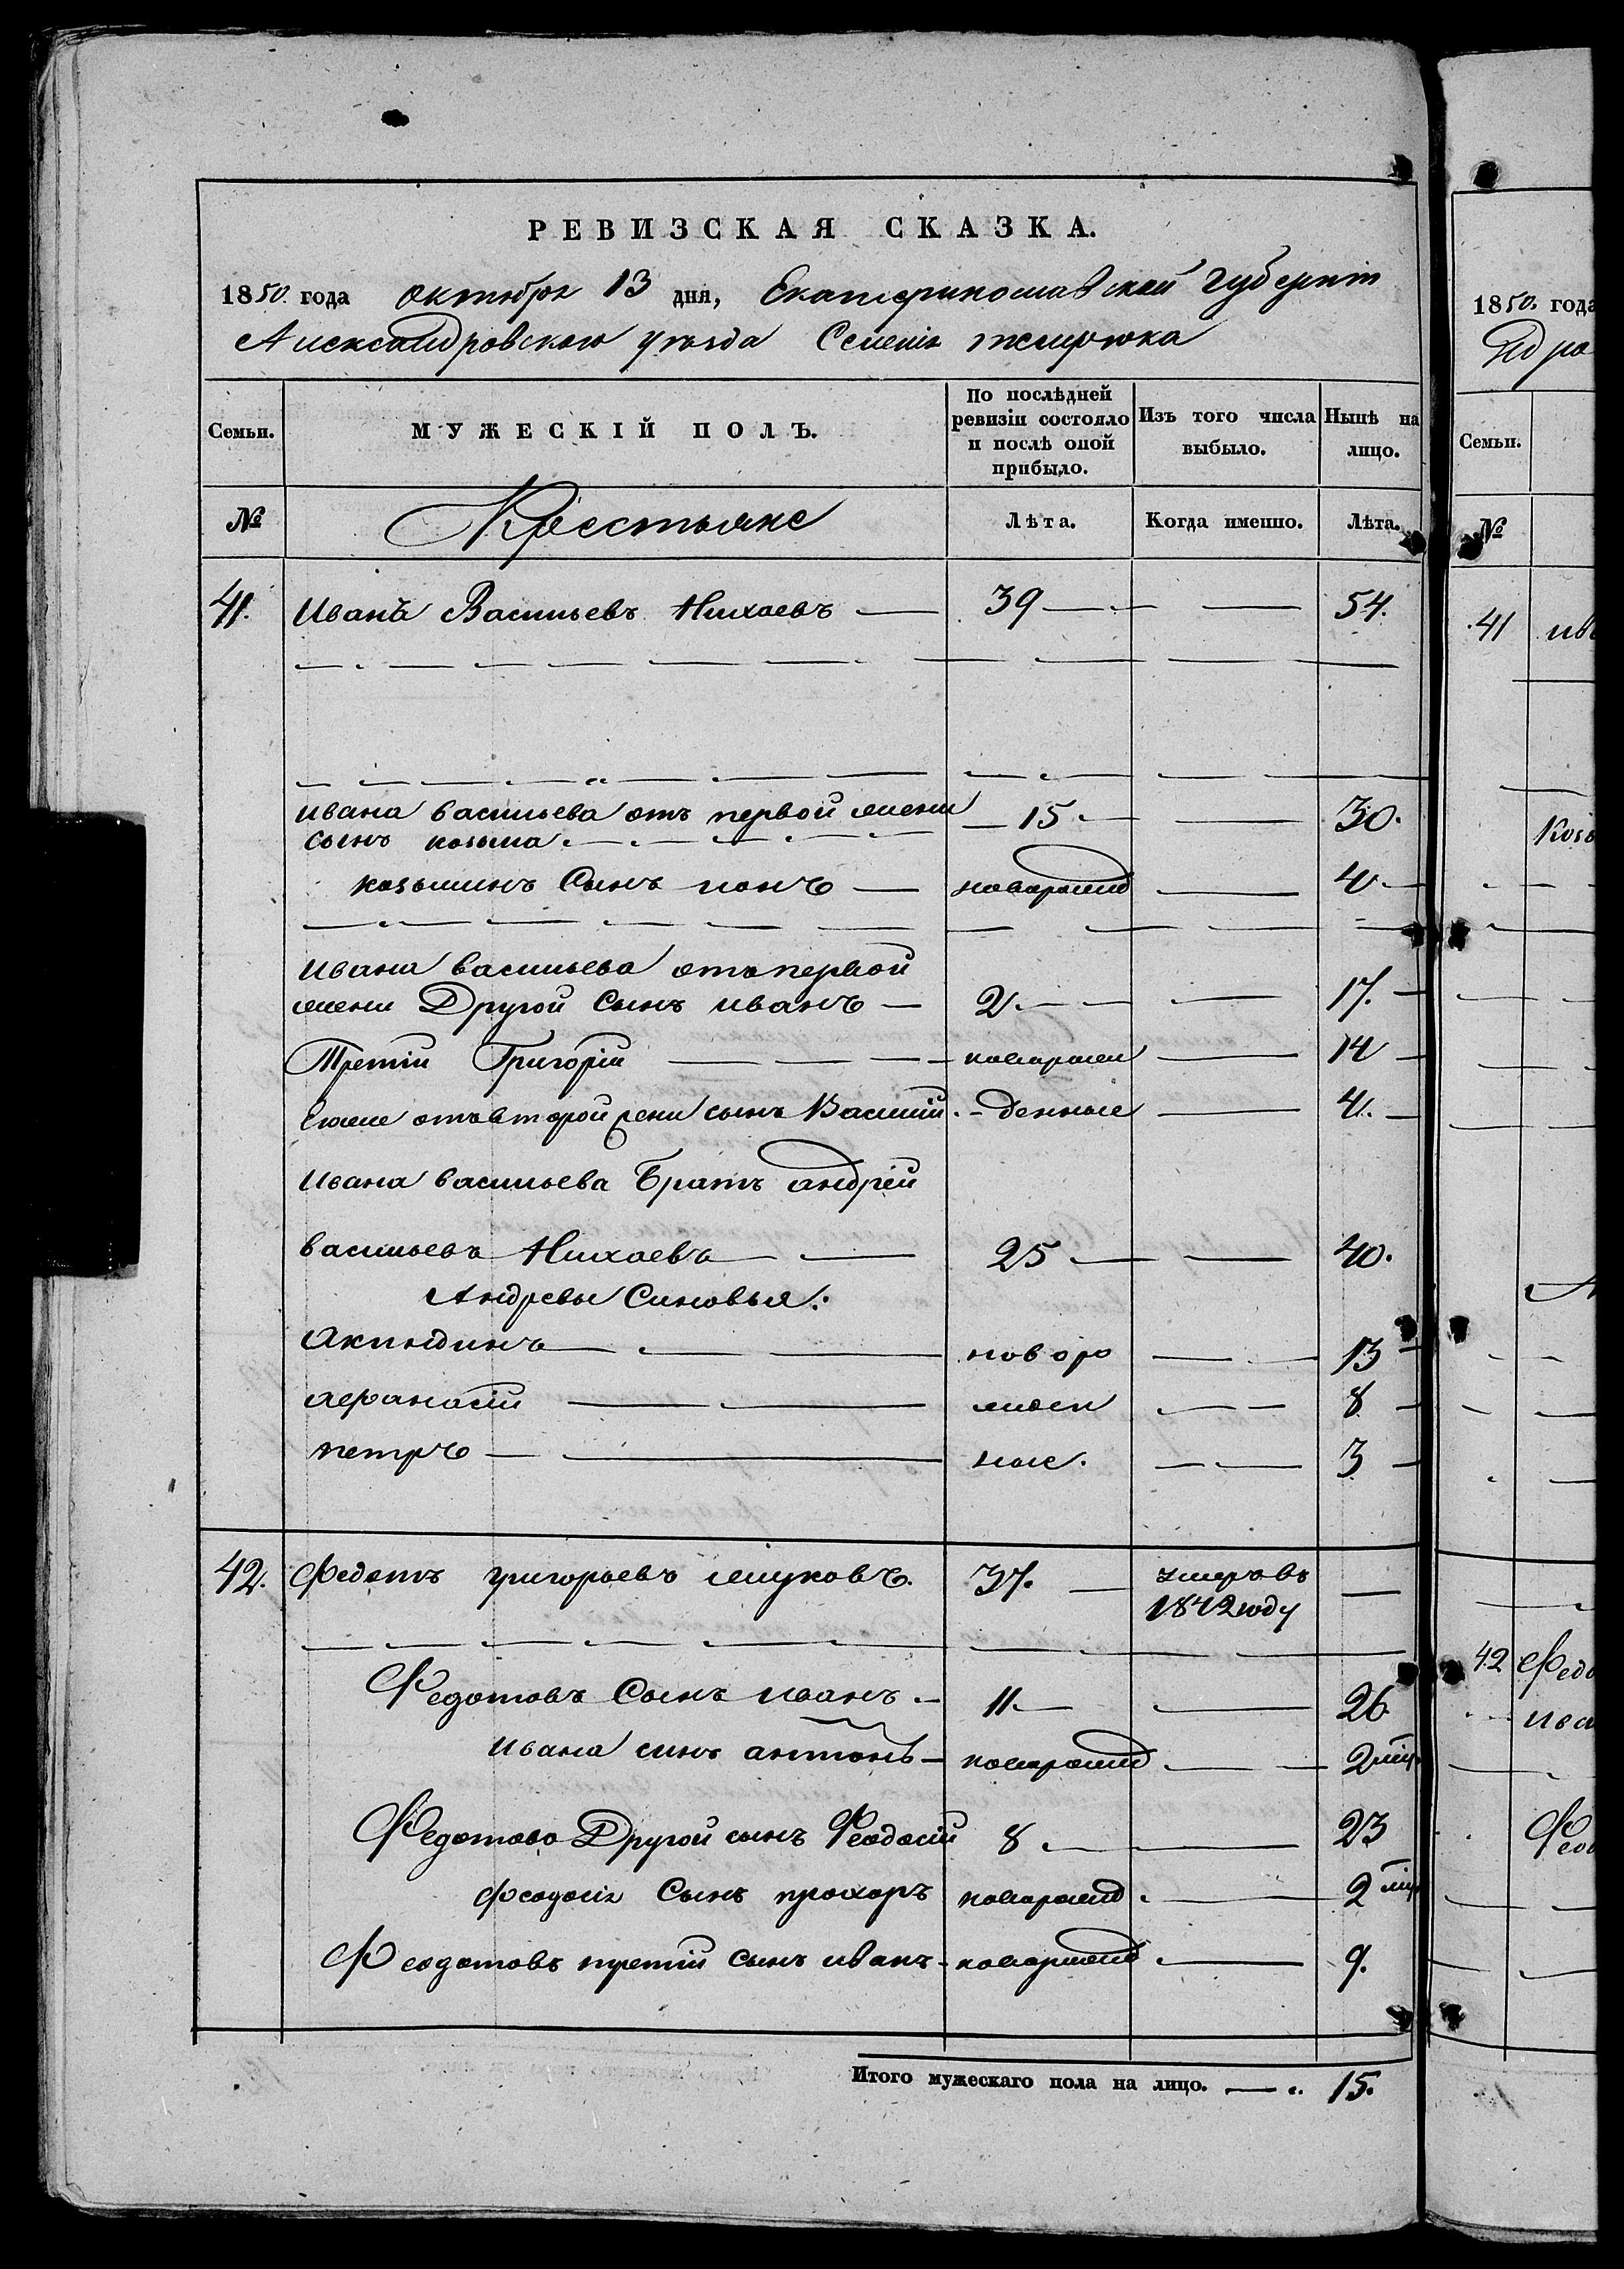 РЕВИЗСКАЯ СКАЗКА.
1850. года октября 13 дня, Екатеринославской губерніи
Александровскаго уѣзда Селенія темрюка
Семьи. МУЖЕСКІЙ ПОЛЪ. По послѣдней ревизіи состояло и послѣ оной прибыло. Изъ того числа выбыло. Нынѣ на лицо.
№ Крестьяне Лѣта. Когда именно. Лѣта.
41. Иванъ Васильевъ Нихаевъ 39 54.
ивана васильева отъ первой жены 15 30.
сынъ козьма.
козьминъ Сынъ іонъ новорожд 4
Ивана васильева отъ первой
жены Другой Сынъ иванъ 2 17.
Третій Григорій новорож 14
Егоже отъ второй жены сынъ Василій. денные 4.
Ивана васильева Братъ андрей
васильевъ Нихаевъ 25 40.
Андревы Синовья:
Акиндинъ новоро 13
афанасій жден 8
петръ ные. 3
42. Федотъ григорьевъ 37. умеръ въ
1842 году
Федотовъ Сынъ иванъ 11. 26
Ивана синъ антонъ новорожд 2 мѣц.
Федотова Другой сынъ Феодосій 8 23
феодосія Сынъ прохоръ новорожд. 2 мѣц
Феодотовъ третій сынъ иванъ новорожд 9.
Итого мужескаго пола на лицо. 15.
1850. года
Семьи.
№
41
42